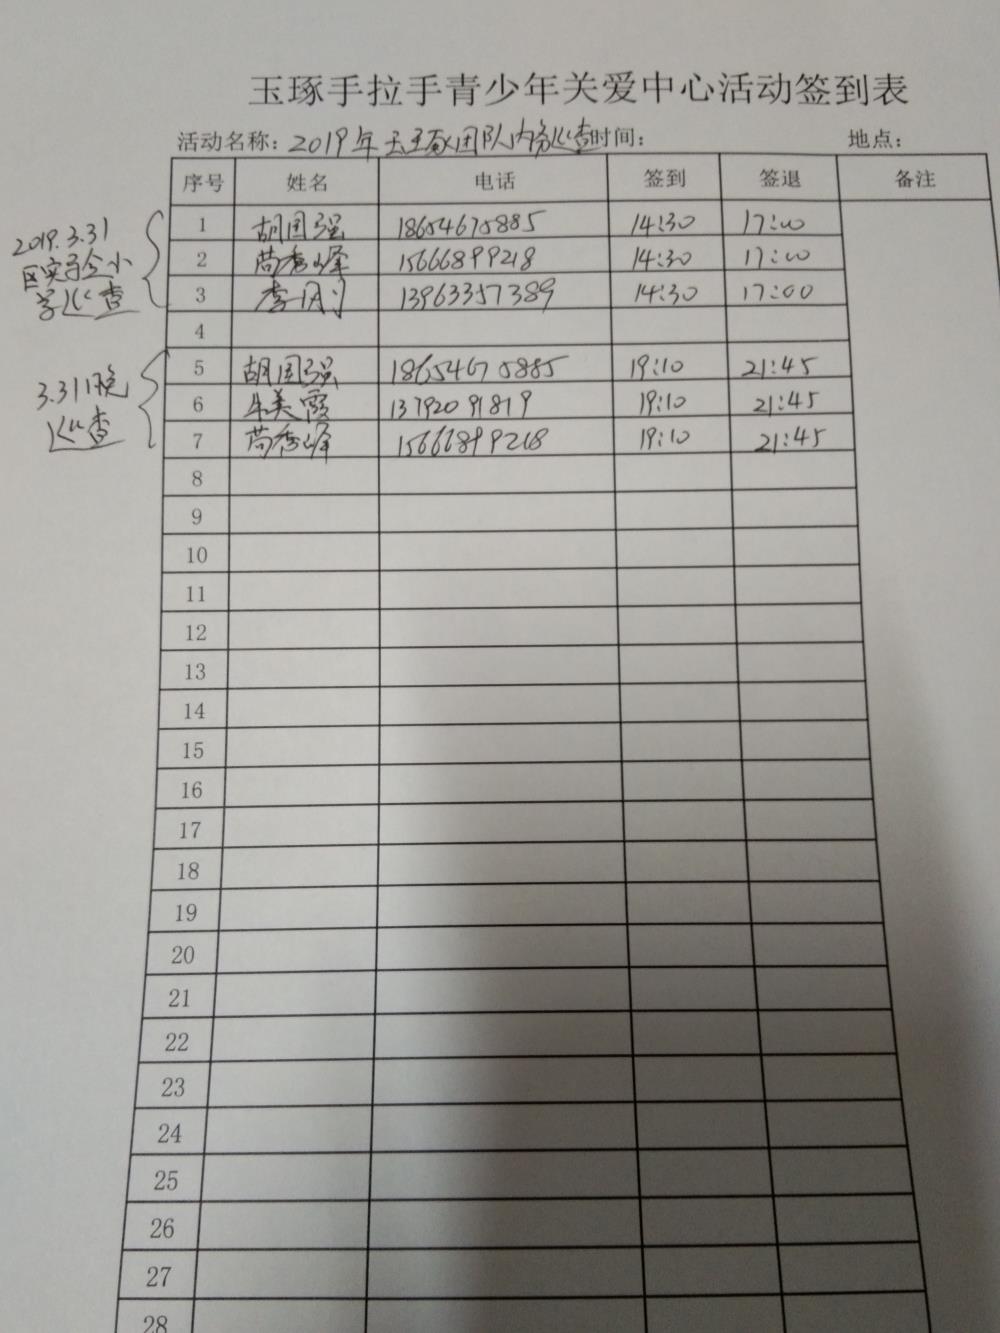 玉琢手拉手青少年关爱中心活动签到表
活动名称：2019年玉琢团队内务巡查时间： 地点：
序号 姓名 电话 签到 签退 备注
2019.3.31
区实验小
学巡查
1 胡国强 18654675885 14:30 17:00
2 苘秀峰 15666899218 14:30 17:00
3 李 13963357389 14:30 17:00
4
3.31晚
巡查
5 胡国强 18654675885 19:10 21:45
6 牛美霞 13792091819 19:10 21:45
7 苘秀峰 15666899218 19:10 21:45
8
9
10
11
12
13
14
15
16
17
18
19
20
21
22
23
24
25
26
27
28